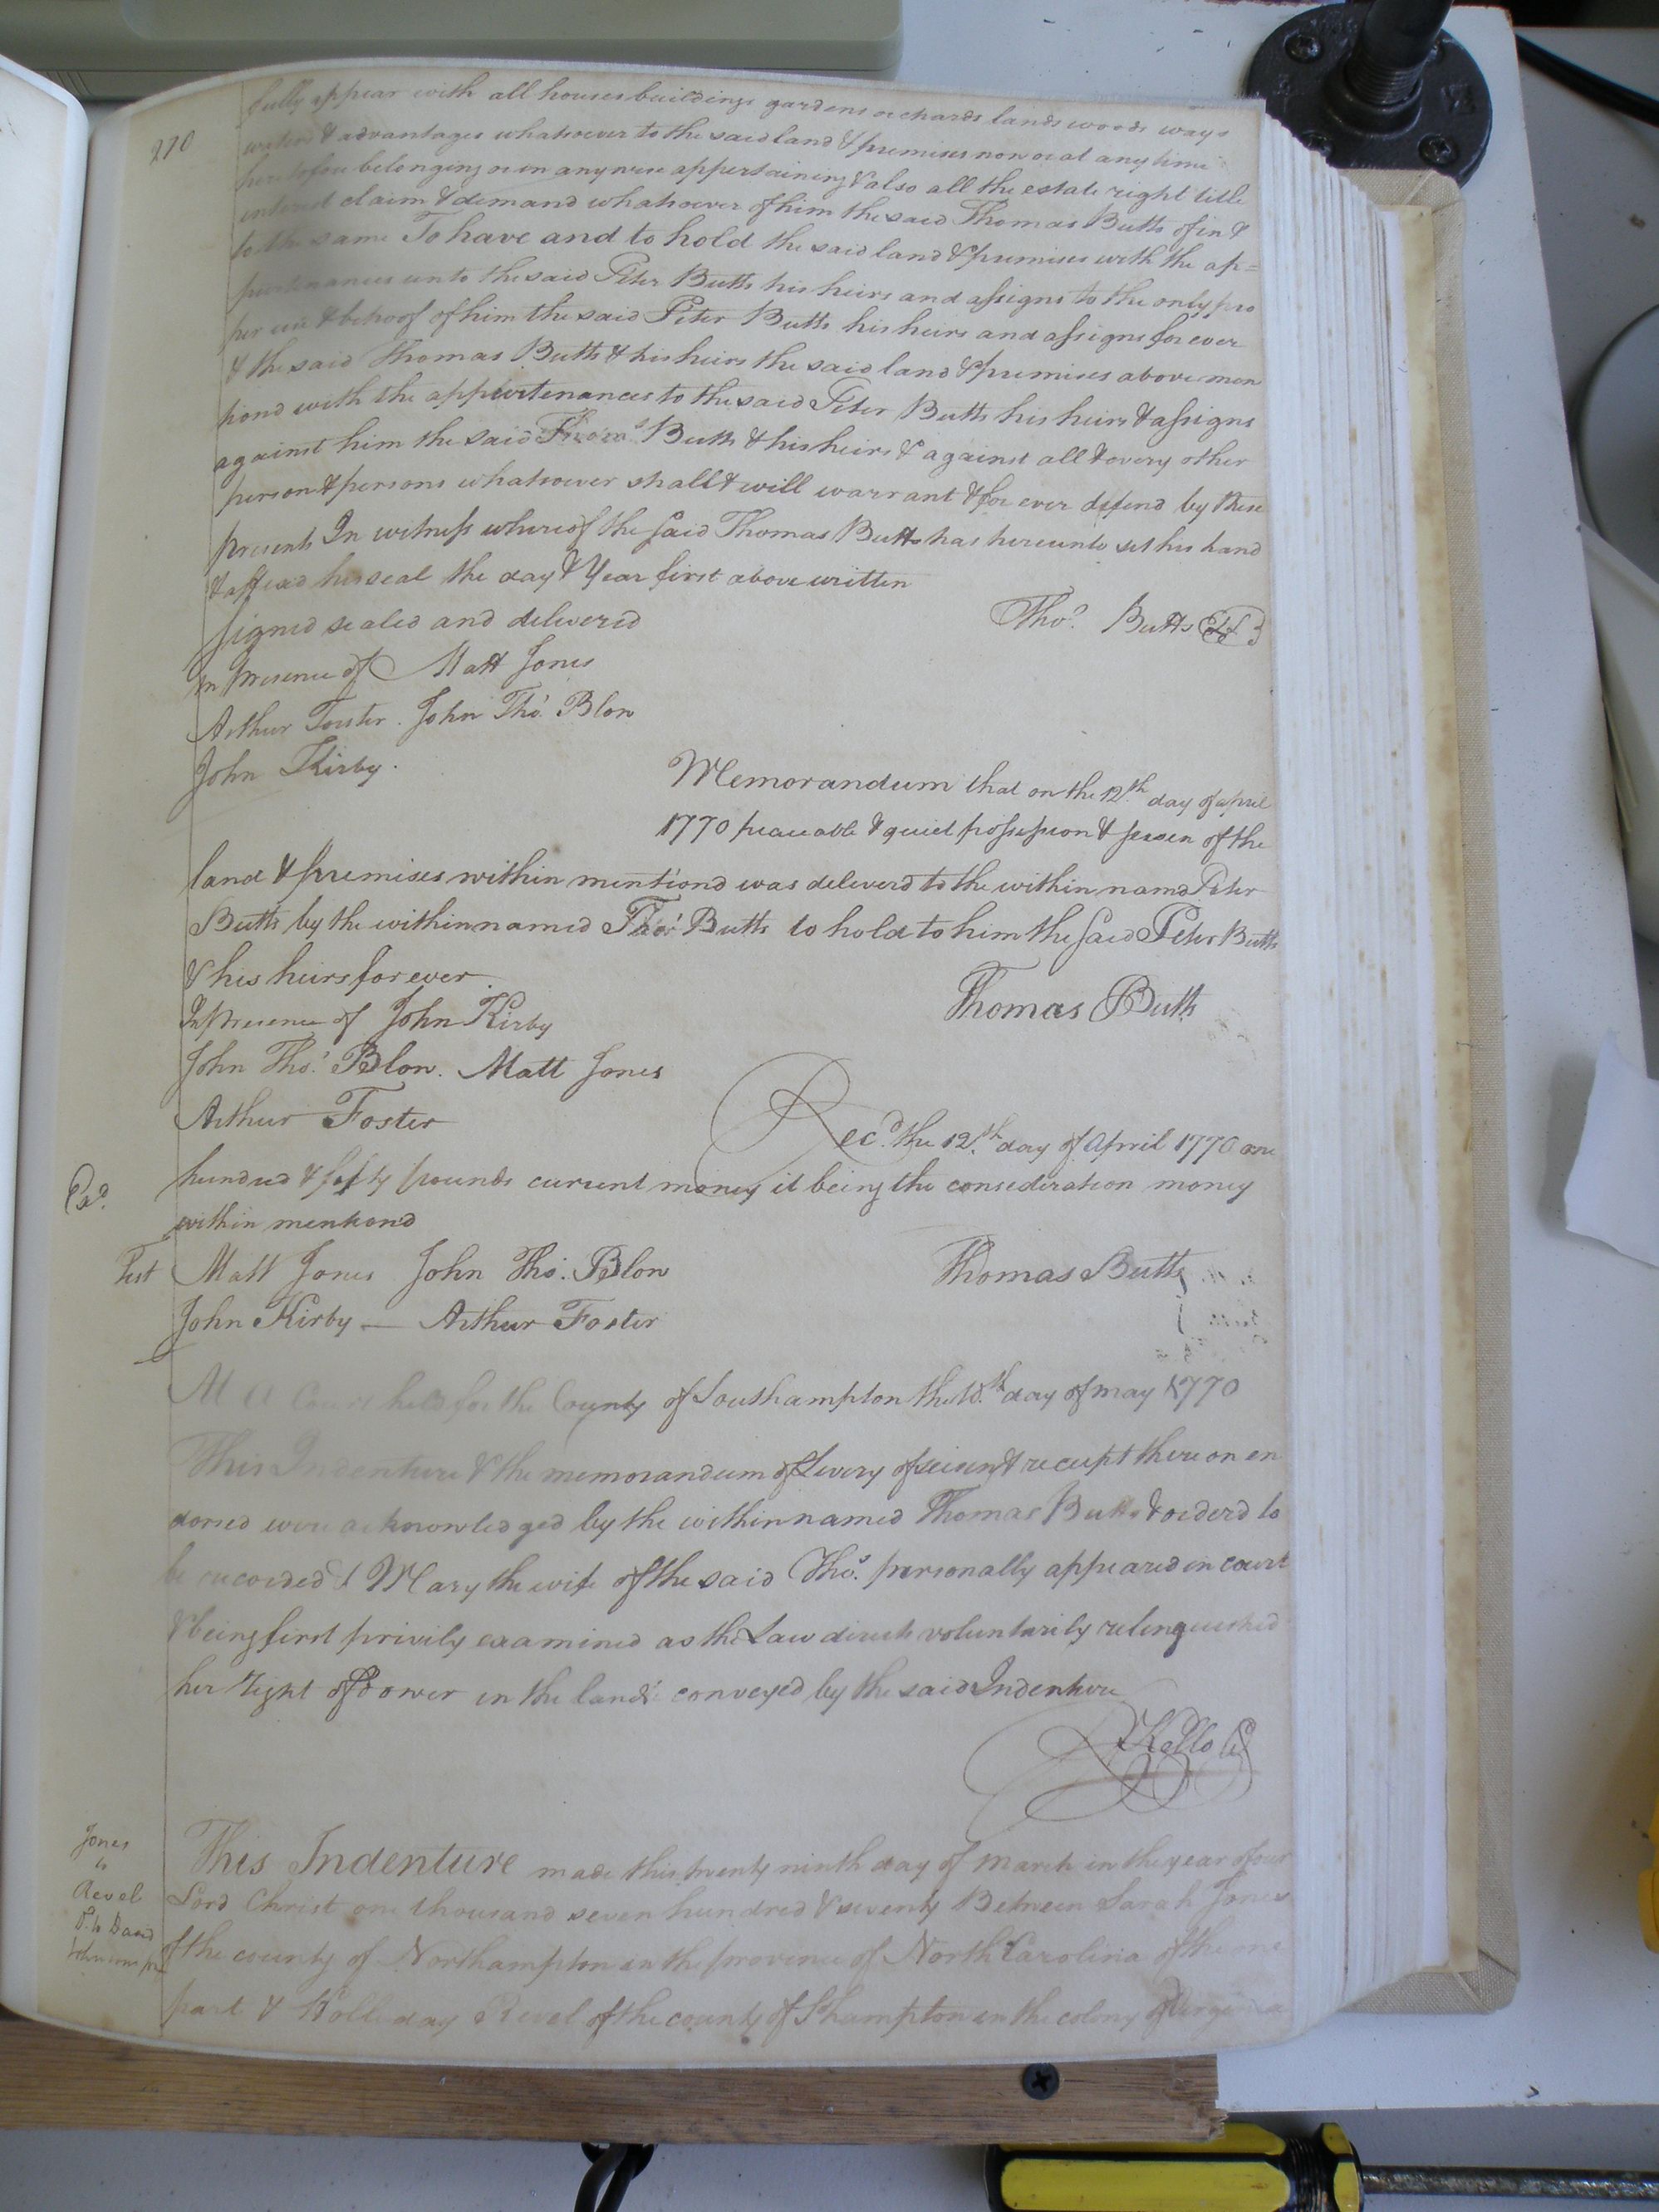 270
fully appear with all houses buildings gardens orchards lands woods ways
waters & advantages whatsoever to the said land & premises now or at any time
heretofore belonging or in any wise appertaining & also all the estate right title
interest claim & demand whatsoever of him the said Thomas Butts of in &
to the same To have and to hold the said land & premises with the ap=
purtenances unto the said Peter Butts his heirs and assigns to the only pro
per use & behoof of him the said Peter Butts his heirs and assigns for ever
& the said Thomas Butts & his heirs the said land & premises above men
tiond with the appurtenances to the said Peter Butts his heirs & assigns
against him the said Thos Butts & his heirs & against all & every other
person & persons whatsoever shall & will warrant & for ever defend by these
presents In witness whereof the said Thomas Butts has hereunto set his hand
& affixd his seal the day & Year first above written
signed sealed and delivered
Thos. Butts
In Presence of Matt Jones
Arthur Foster. John Thos. Blow
John Kirby.
Memorandum that on the 12th day of april
1770 peaceable & quiet possession & seisen of the
land & premises within mentiond was deliverd to the within namd Peter
Butts by the within named Thos. Butts to hold to him the said Peter Butts
& his heirs for ever.
In presence of John Kirby
Thomas Butts
John Thos. Blow. Matt Jones
Arthur Foster
Recd. the 12th. day of April 1770 one
hundred & fifty pounds current money it being the consideration money
within mentiond
Exd.
Test Matt Jones John Thos. Blow
Thomas Butts
John Kirby — Arthur Foster
At a Court held for the County of Southampton the 10th. day of may 1770
This Indenture & the memorandum of Livery of seisen & receipt there on en
dorsed were acknowledged by the within named Thomas Butts & orderd to
be recorded & Mary the wife of the said Thos. personally appeared in court
& being first privily examined as the Law directs voluntarily relinquished
her right of dower in the lands conveyed by the said Indenture
R Kello Cl
Jones
to
Revel
This Indenture made this twenty ninth day of March in the year of our
Lord Christ one thousand seven hundred & seventy Between Sarah Jones
of the county of Northampton in the province of North Carolina of the one
part & Holleday Revel of the county of Shampton in the colony of Virginia